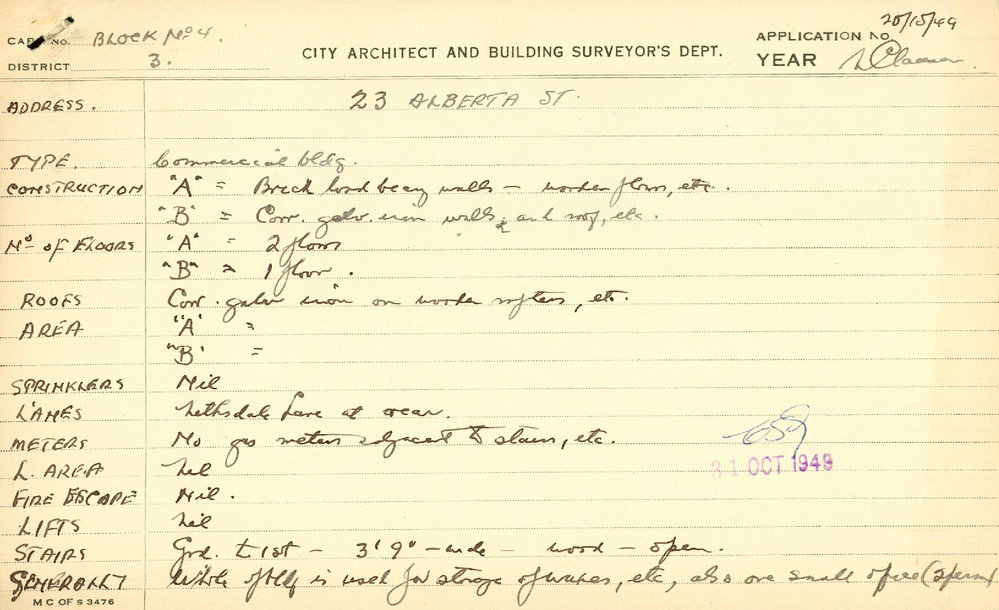 CARD NO. BLOCK No 4.
DISTRICT 3.
CITY ARCHITECT AND BUILDING SURVEYOR'S DEPT.
APPLICATION No.
YEAR
ADDRESS. 23 ALBERTA ST.
TYPE. Commercial bldg.
CONSTRUCTION "A" = Brick load beary walls - wooden floors, etc.
"B" = Corr. galv. iron walls and roof, etc.
No of FLOORS "A" = 2 floors
"B" = 1 floor.
ROOFS Corr. galv iron on wooden rafters, etc.
AREA "A" =
"B" =
SPRINKLERS Nil
LANES Nethsdale Lane at rear.
METERS No gas meters adjacent to stairs, etc.
31 OCT 1949
L. AREA Nil
FIRE ESCAPE Nil.
LIFTS Nil
STAIRS Grd. to 1st - 3' 9" - wide - wood - open.
GENERALLY Whole of bldg is used for storage of wares, etc, also one small office (2 persons)
M C OF S 3476